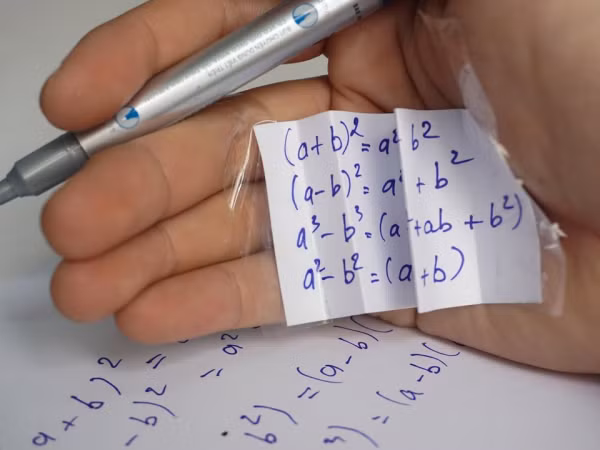 (a+b)² = a² b²
(a-b)² = a² + b²
a³ - b³ = (a² + ab + b²)
a² - b² = (a + b)
a + b)² =
- b)² = = a²
b²) = (a - b)(
) = (a - b)(